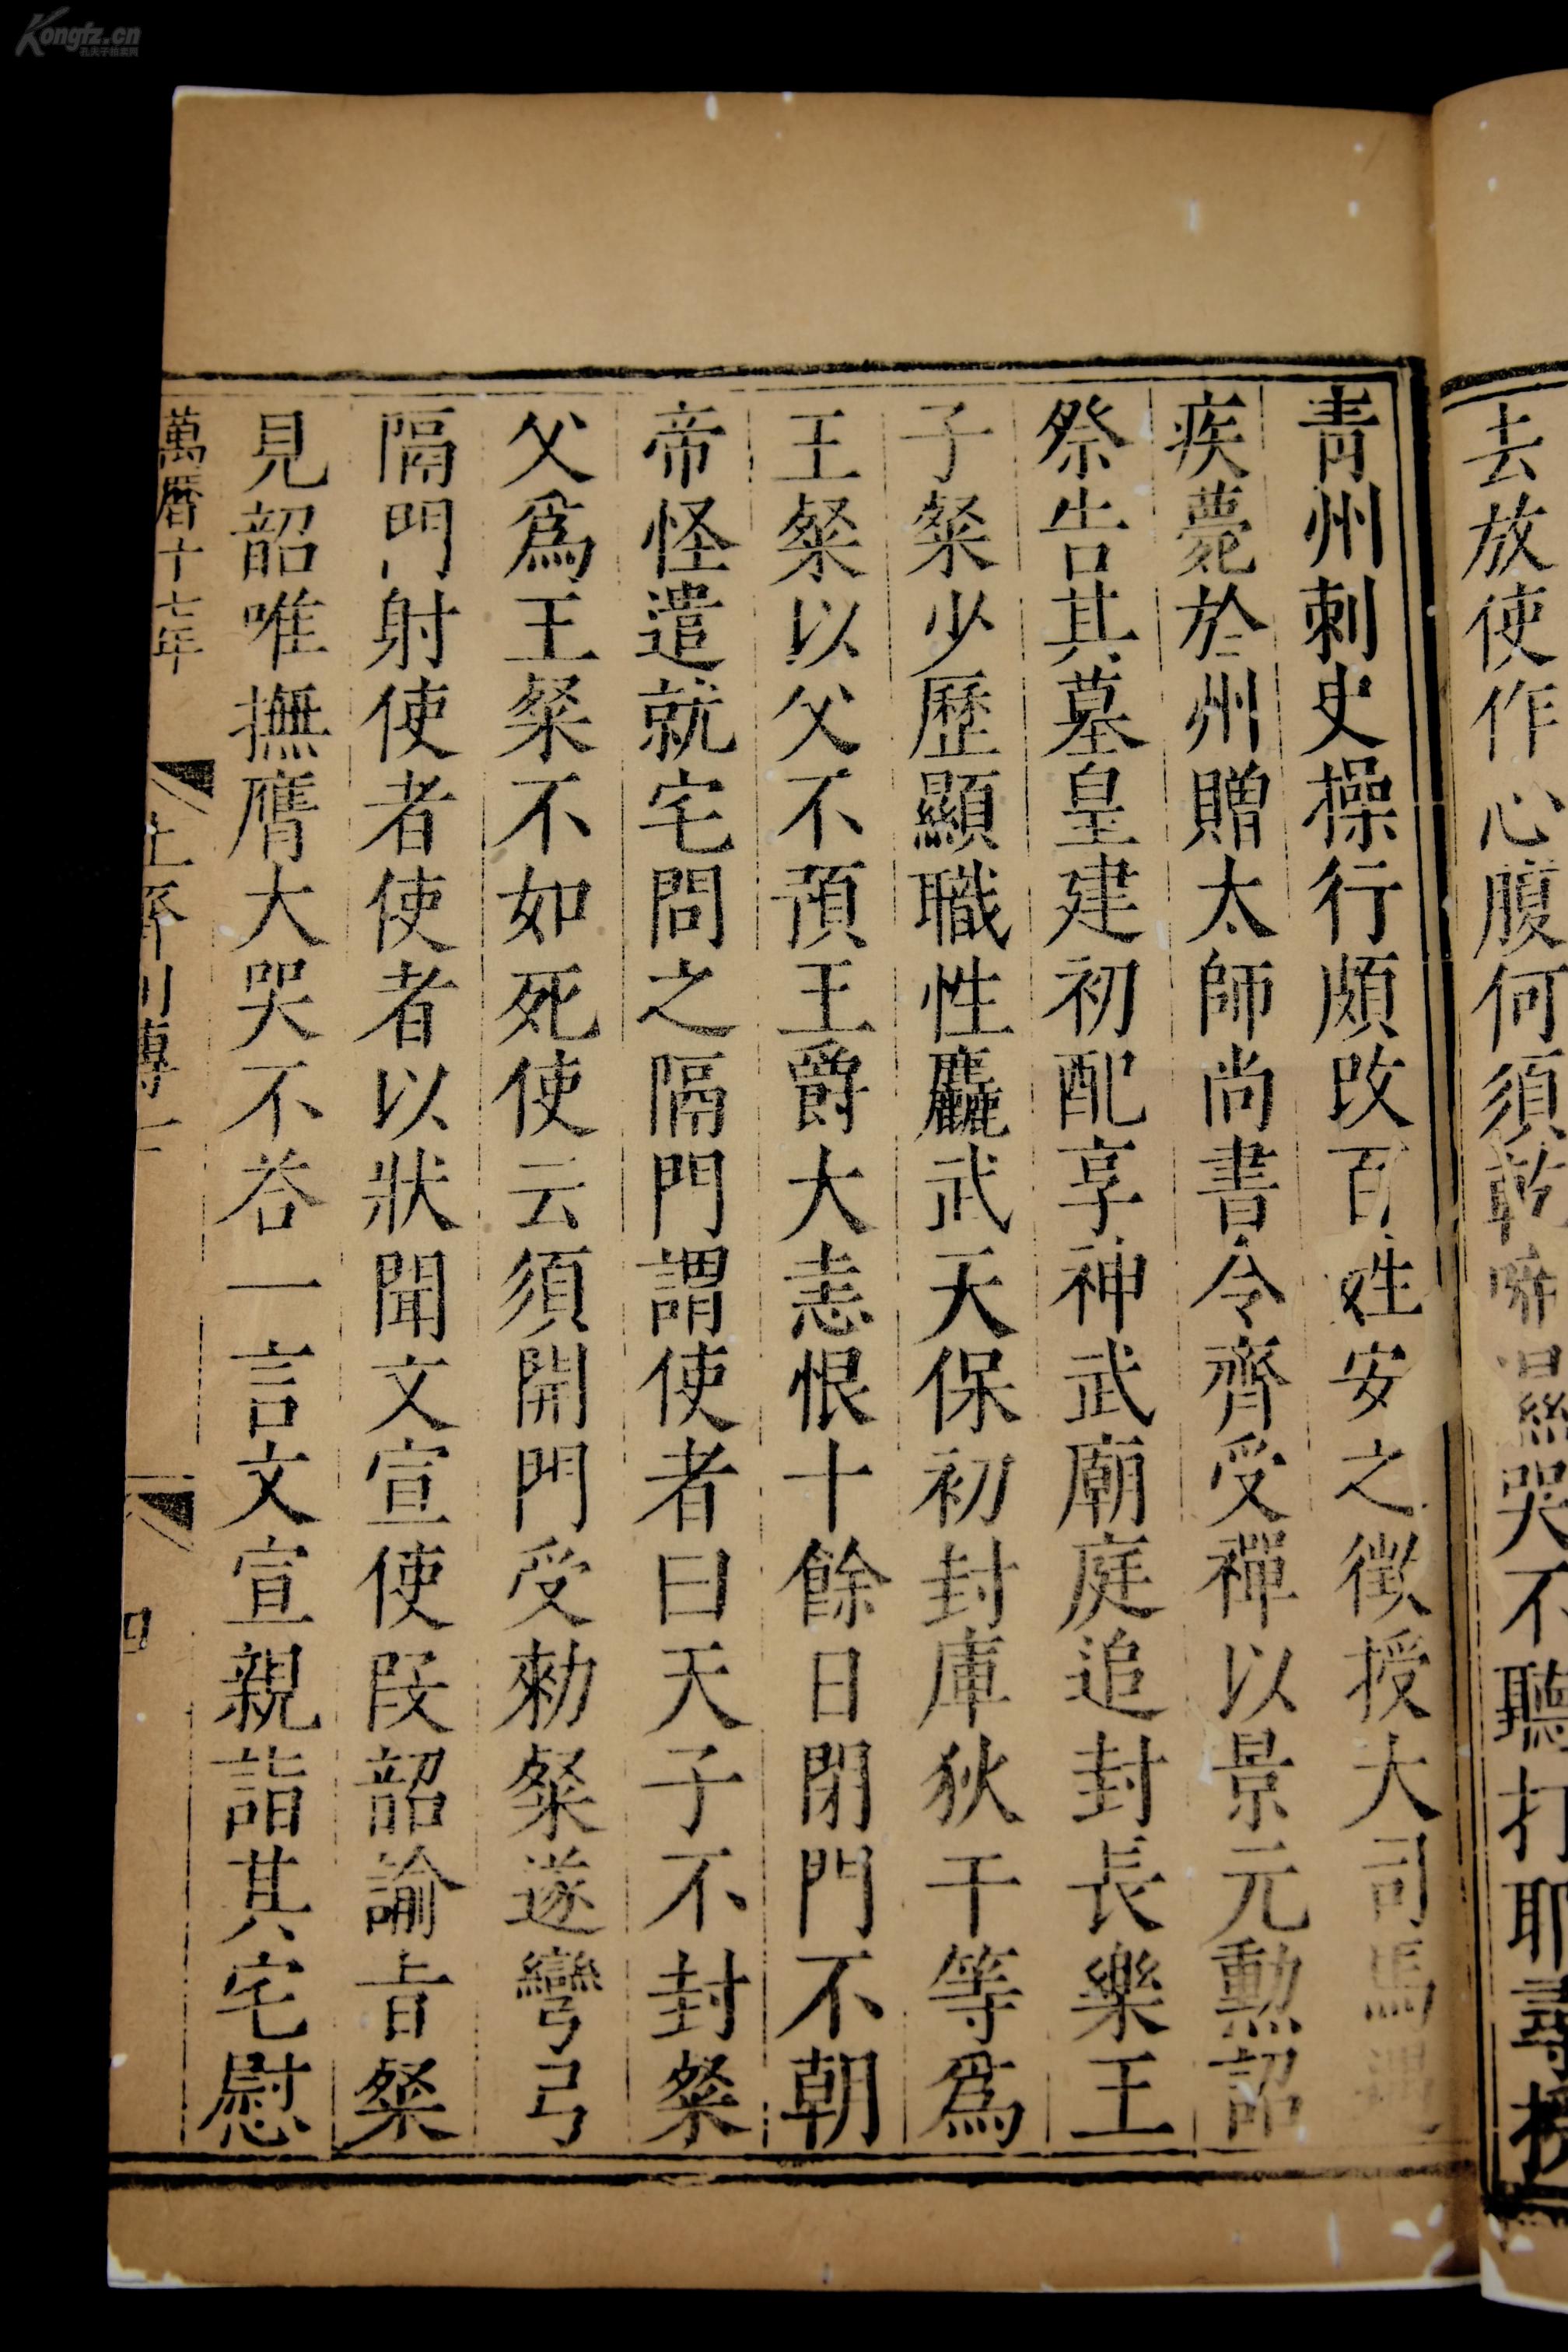 去放使作心腹何須乾啼濕哭不聽打耶尋授
青州刺史操行頗改百姓安之徵授大司馬
疾薨於州贈太師尚書令齊受禪以景元勲詔
祭告其墓皇建初配享神武廟庭追封長樂王
子粲少歷顯職性麤武天保初封庫狄干等爲
王粲以父不預王爵大恚恨十餘日閉門不朝
帝怪遣就宅問之隔門謂使者曰天子不封粲
父爲王粲不如死使云須開門受勑粲遂彎弓
隔門射使者使者以狀聞文宣使段韶諭旨粲
見韶唯撫膺大哭不荅一言文宣親詣其宅慰
萬曆十七年
列傳
四
Kongfz.cn